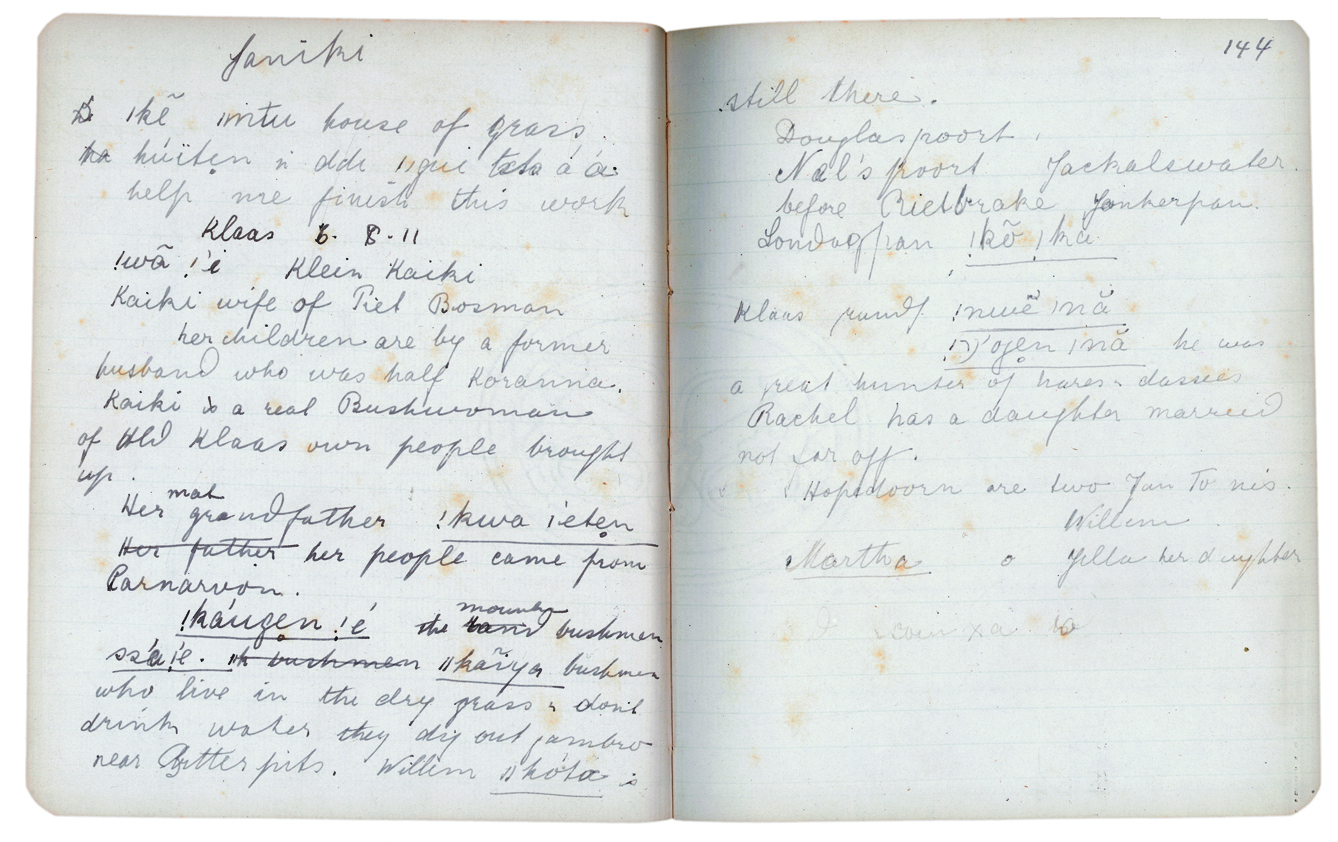 Janiki
ǀkẽ ǀintu house of grass.
ha húïten n ddi ǁgui á á
help me finish this work
Klaas 8.11
ǃwã ǃé Klein Kaiki
Kaiki wife of Piet Bosman
her children are by a former
husband who was half Koranna.
Kaiki is a real Bushwoman
of Old Klaas own people brought
up.
mat
Her grandfather ǃkwa ǀeten
Her father her people came from
Carnarvon.
mountn
ǃkáugen ǃé the bushmen
ssʼaǃe. ǁk bushmen ǁkãiya bushmen
who live in the dry grass & dont
drink water they dig out gambro
near Bitterpits. Willem ǁkóta is
144
still there.
Douglaspoort,
Nel's poort Jackalswater.
before Rietbrake Jonkerpan.
pan ǃkõ ǀka
Klaas ǃnuẽ ǀnã
ogen ǀnã he was
a great hunter of hares & dassies
Rachel has a daughter married
not far off.
Hopedoorn are two Jan To nis.
Willem.
Martha o Jella her daughter